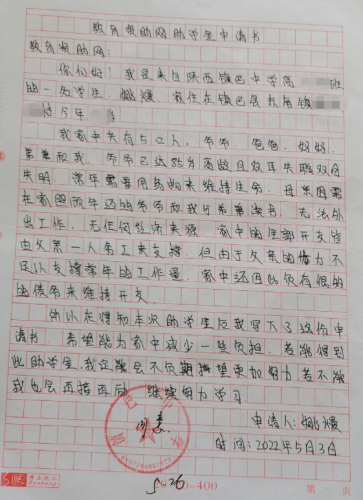 教育资助网助学金申请书
教育资助网:
你们好! 我是来自陕西镇巴中学高 班
的一名学生,姚媛,家住在镇巴县
今年
我家中共有5口人,爷爷,爸爸,妈妈,
弟弟和我。爷爷已达85岁高龄且双耳失聪双目
失明。常年需要用药物来维持生命。母亲因需
在家照顾年迈的爷爷和我与弟弟读书,无法外
出工作,无任何经济来源,家中的全部开支皆
由父亲一人务工来支撑。但由于父亲的体力不
足以支撑常年的工作量,家中还因此负有很多
的债务来维持开支。
所以在得知本次助学金后我写下了这份申
请书。希望能为家中减少一些负担。若能得到
此助学金,我定然会不负期望更加努力若不能
我也会再接再励,继续努力学习
申请人:姚媛
时间:2022年5月3日
5.26
20×20=400